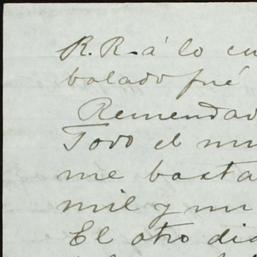 R.R. á lo cu
bolado fué
Remendad
Todo el mu
me basta
mil y mu
El otro dia